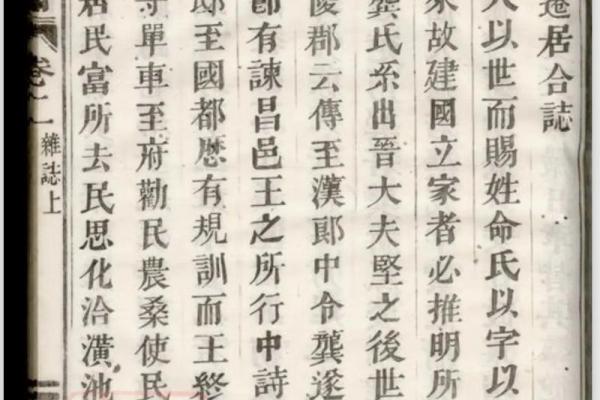 遷居合誌
人以世而賜姓命氏以字以
家故建國立家者必推明所
龔氏系出晉大夫堅之後世
陵郡云傳至漢郎中令龔遂
即有諫昌邑王之所行中詩
邸至國都厯有規訓而王終
守單車至府勸民農桑使民
居民富所去民思化洽潢池
卷一
雜誌上